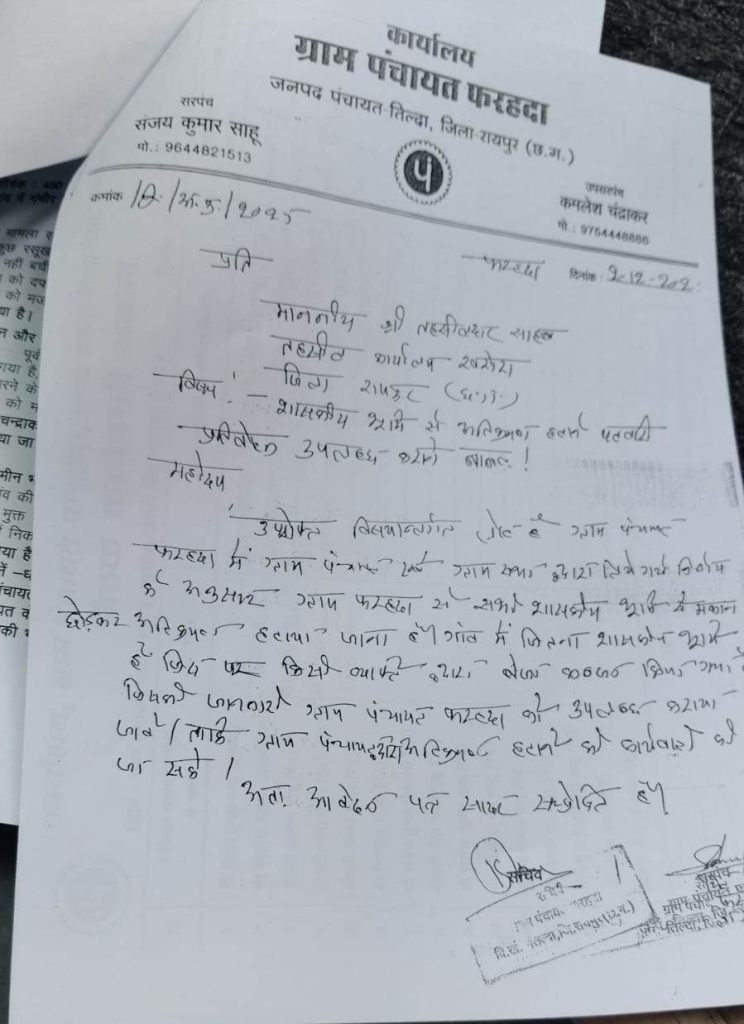 कार्यालय
ग्राम पंचायत फरहदा
जनपद पंचायत-तिल्दा, जिला-रायपुर (छ.ग.)
सरपंच
संजय कुमार साहू
मो.: 9644821513
प
उपसरपंच
कमलेश चंद्राकर
मो.: 9754448866
कमांक /2025
फरहदा दिनांक
प्रति
माननीय श्री तहसीलदार साहब
तहसील कार्यालय खरोरा
जिला रायपुर (छ.ग.)
विषय :- शासकीय भूमि से अतिक्रमण हटाने पटवारी
प्रतिवेदन उपलब्ध कराने बाबत !
महोदय
उपरोक्त विषयान्तर्गत लेख है ग्राम पंचायत
फरहदा में ग्राम पंचायत एवं ग्राम सभा द्वारा लिये गये निर्णय
के अनुसार ग्राम फरहदा से सभी शासकीय भूमि से मकान
छोड़कर अतिक्रमण हटाया जाना है। गांव में जितना शासकीय भूमि
है जिस पर किसी व्यक्ति द्वारा बेजा कब्जा किया गया है
जिसकी जानकारी ग्राम पंचायत फरहदा को उपलब्ध कराया
जावे। ताकि ग्राम पंचायत द्वारा अतिक्रमण हटाने की कार्यवाही की
जा सके।
अतः आवेदन पत्र सादर सम्प्रेषित है।
सचिव
सचिव
ग्राम पंचायत फरहदा
वि.खं. तिल्दा, जि. रायपुर (छ.ग.)
सरपंच